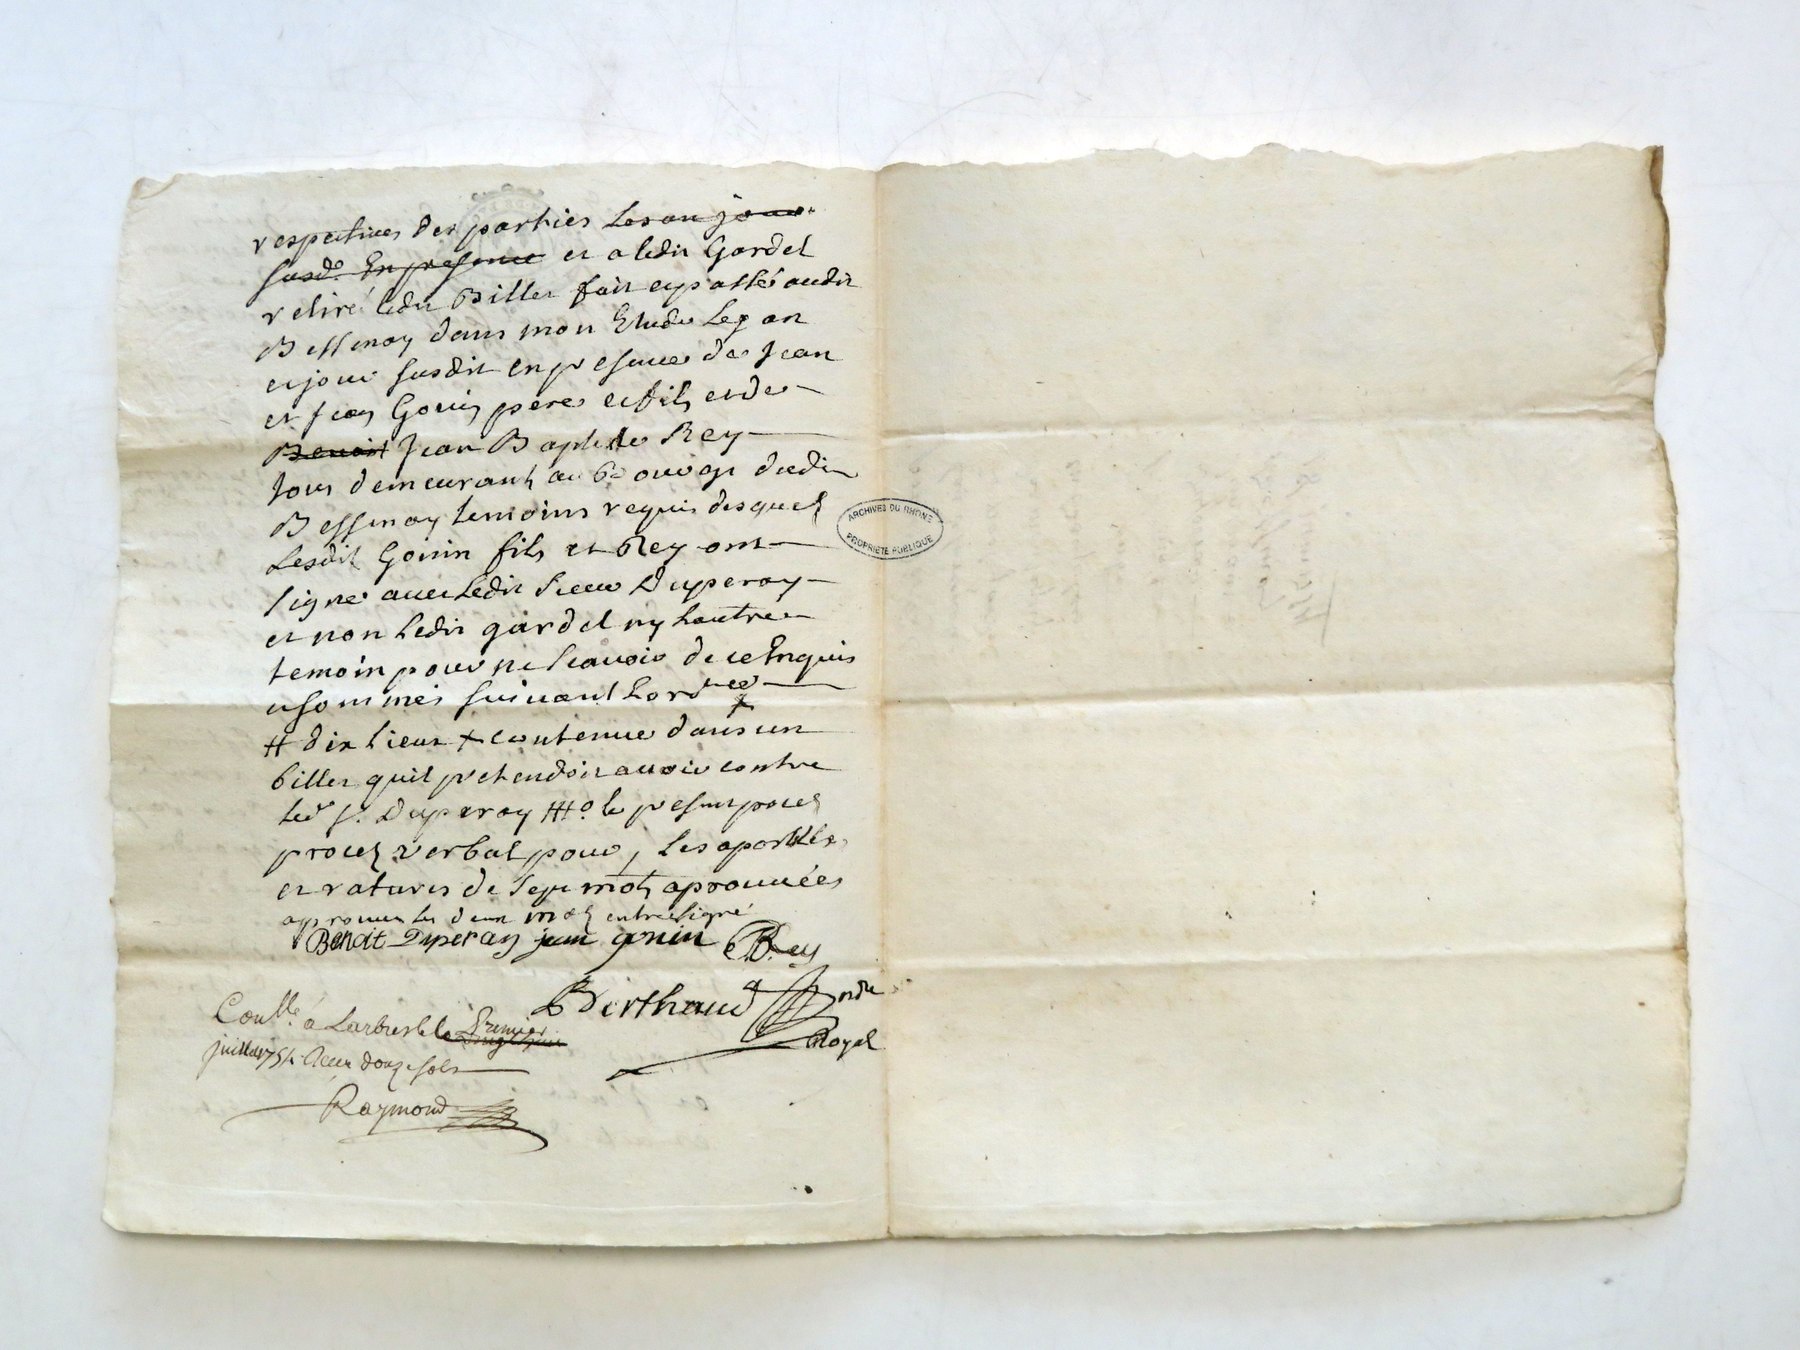 respectives des parties Les an jour
susd. En presence et a ledit Gardel
retiré ledit Billet fait et passé audit
Bessenay dans mon Etude Les an
et jour susdit en presence de Jean
et Jean Gonin pere et fils et de
Benoit Jean Baptiste Rey
tous demeurants au Bourg dudit
Bessenay temoins requis desquels
Lesdits Gonin fils et Rey ont
signé avec Ledit Sieur Duperay
et non Ledit gardel ny Lautre
temoin pour ne scavoir de ce Enquis
et sommés suivant Lord.ce
# dix sieur + contenue dans un
billet quil pretendoit avoir contre
led. S.r Duperay le present
procez verbal pour, Les apostilles
et ratures de sept mots aprouvées
approuvé les deux mots entreligne
Benoit Duperay jean gonin J.B. Rey
Berthaud No.re
Royal
Con.lle à Larbresle le Premier
juillet 175 Recu douze sols
Raymond
ARCHIVES DU RHONE
PROPRIETE PUBLIQUE